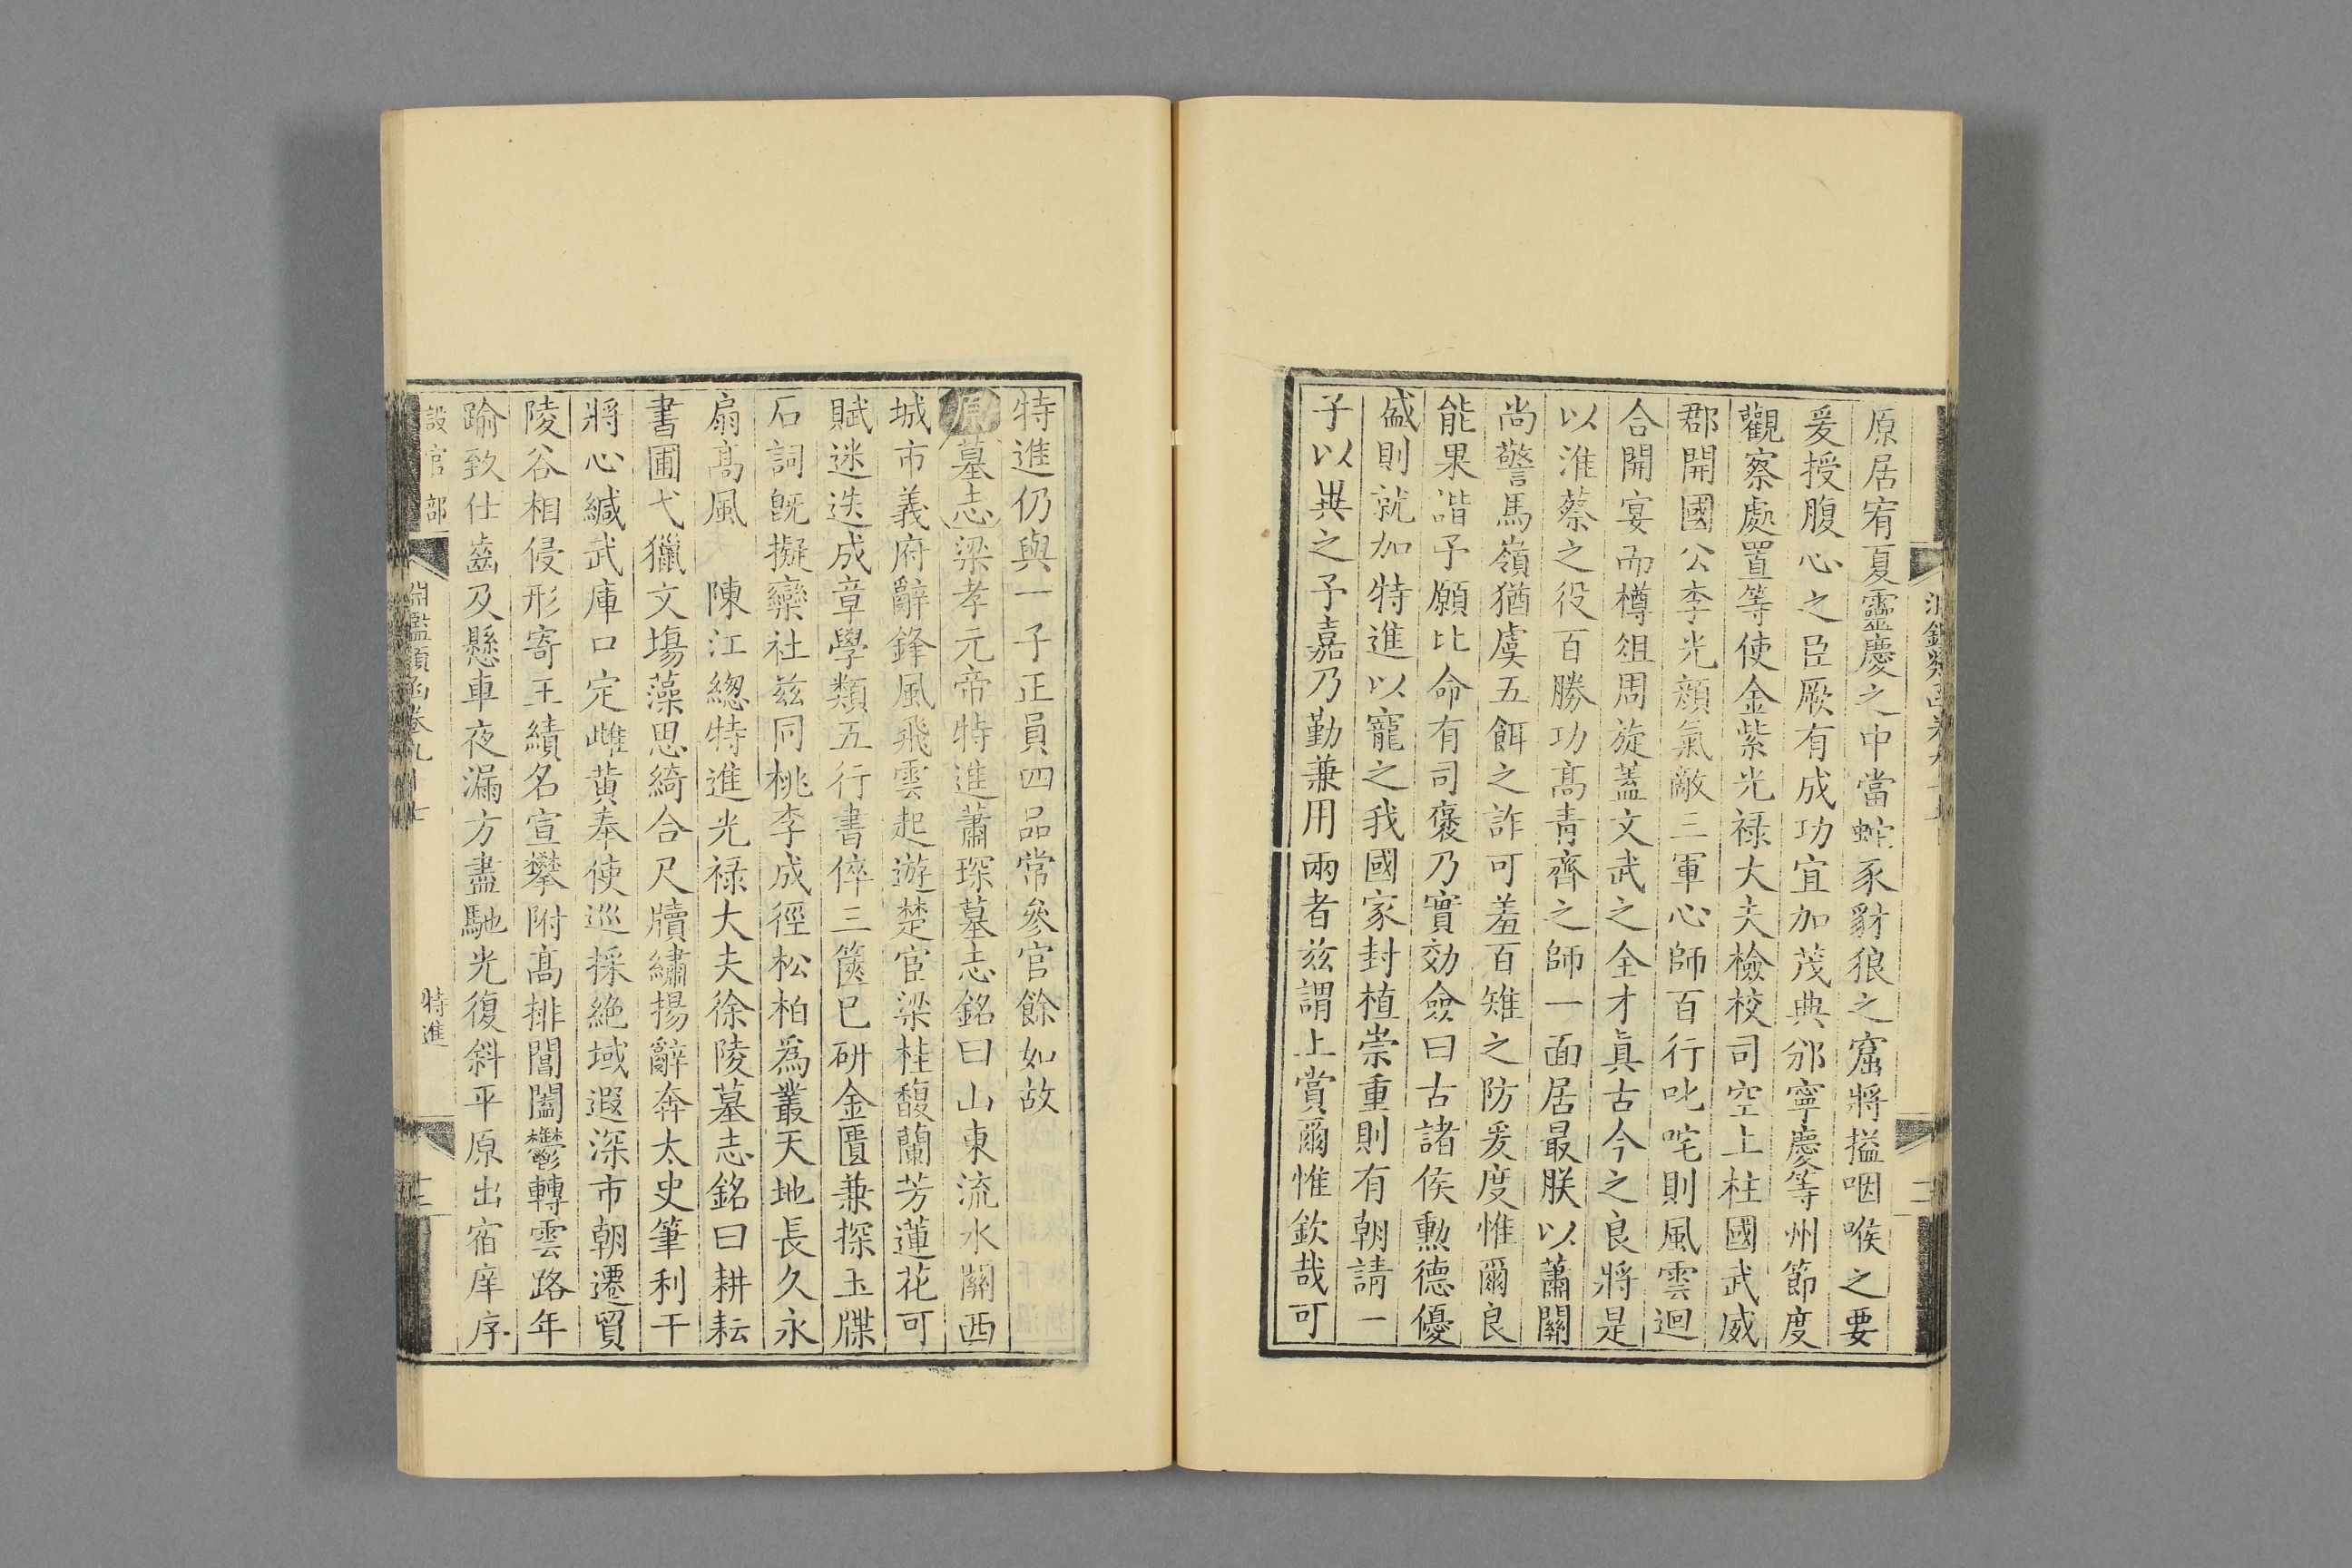 原居宥夏靈慶之中當蛇豕豺狼之窟將搤咽喉之要
爰授腹心之臣厥有成功宜加茂典邠寧慶等州節度
觀察處置等使金紫光禄大夫檢校司空上柱國武威
郡開國公李光顔氣敵三軍心師百行叱咤則風雲迴
合開宴而樽俎周旋蓋文武之全才眞古今之良將是
以淮蔡之役百勝功髙青齊之師一面居最朕以蕭關
尚警馬嶺猶虞五餌之詐可羞百雉之防爰度惟爾良
能果諧予願比命有司褒乃實効僉曰古諸侯勲德優
盛則就加特進以寵之我國家封植崇重則有朝請一
子以㢲之予嘉乃勤兼用兩者兹謂上賞爾惟欽哉可
特進仍與一子正員四品常參官餘如故
原墓志梁孝元帝特進蕭琛墓志銘曰山東流水關西
城市義府辭鋒風飛雲起遊楚宦梁桂馥蘭芳蓮花可
賦迷迭成章學類五行書倅三篋巳研金匱兼探玉牒
石詞旣擬欒社兹同桃李成徑松柏爲叢天地長久永
扇髙風 陳江緫特進光禄大夫徐陵墓志銘曰耕耘
書圃弋獵文塲藻思綺合尺牘繡揚辭奔太史筆利干
將心緘武庫口定雌黄奉使巡採絶域遐深市朝遷貿
陵谷相侵形寄王績名宣攀附髙排閶闔鬱轉雲路年
踰致仕齒及懸車夜漏方盡馳光復斜平原出宿庠序
設官部
淵鑑類函卷九十七
特進
十二